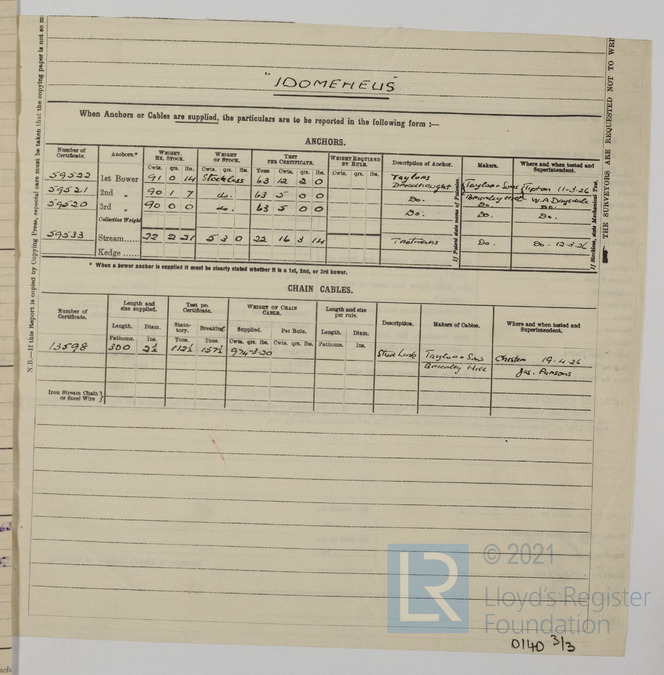 "IDOMENEUS"
When Anchors or Cables are supplied, the particulars are to be reported in the following form :—
ANCHORS.
Number of Certificate. Anchors.* WEIGHT. EX. STOCK. WEIGHT OF STOCK. TEST PER CERTIFICATE. WEIGHT REQUIRED BY RULE. Description of Anchor. Makers. Where and when tested and Superintendent.
Cwts. qrs. lbs. Cwts. qrs. lbs. Tons Cwts. qrs. lbs. Cwts. qrs. lbs.
59522 1st Bower 91 0 14 Stockless 63 12 2 0 Taylors Dreadnought Taylor & Sons Brierley Hill Tipton 11-3-26 W.A Daysdale
59521 2nd " 90 1 7 do. 63 5 0 0 Do. Do. Do.
59520 3rd " 90 0 0 do. 63 5 0 0 Do. Do. Do.
Collective Weight
59533 Stream 22 2 21 5 3 0 22 16 3 14 Trotmans Do. Do. 12-3-26
Kedge
* When a bower anchor is supplied it must be clearly stated whether it is a 1st, 2nd, or 3rd bower.
If Patent state name of Patentee.
If Stockless, state Mechanical Test.
CHAIN CABLES.
Number of Certificate. Length and size supplied. Test per Certificate. WEIGHT OF CHAIN CABLE. Length and size per rule. Description. Makers of Cables. Where and when tested and Superintendent.
Length. Diam. Statutory. Breaking. Supplied. Per Rule. Length. Diam.
Fathoms. Ins. Tons. Tons. Cwts. qrs. lbs. Cwts. qrs. lbs. Fathoms. Ins.
13598 300 112½ 157½ 974-3-20 Stud Link Taylor & Sons Chester 19-4-26
Brierley Hill Jas. Parsons
Iron Stream Chain or Steel Wire }
N.B.—If this Report is copied by Copying Press, especial care must be taken that the copying paper is not so m
THE SURVEYORS ARE REQUESTED NOT TO WRI
LR
© 2021
Lloyd's Register
Foundation
0140 3/3